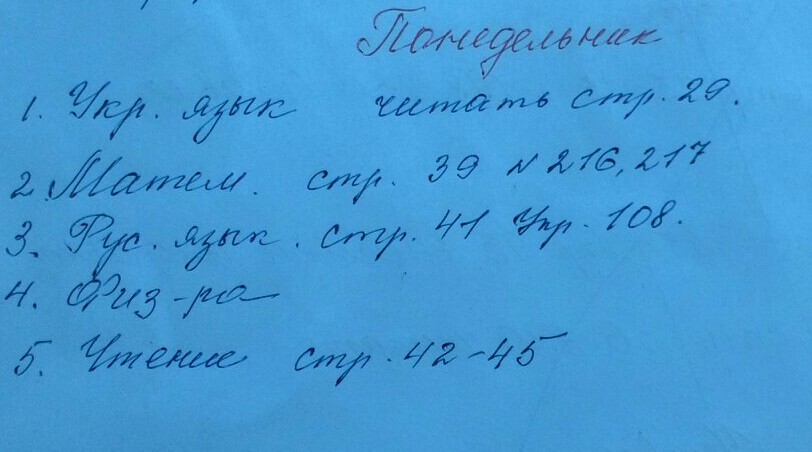 Понедельник
1. Укр. язык читать стр. 29.
2. Матем. стр. 39 N 216, 217
3. Рус. язык. стр. 41 Упр. 108.
4. Физ-ра
5. Чтение стр. 42-45